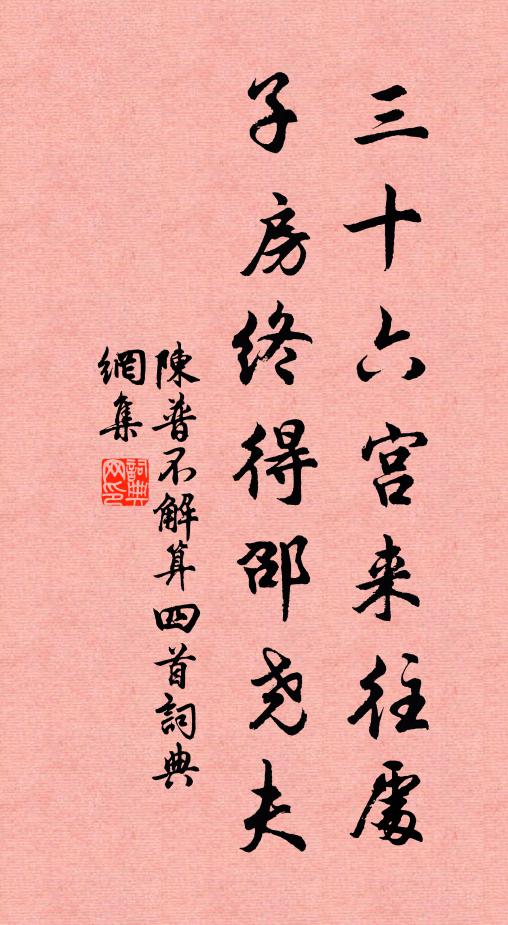 三十六宫来往處
子房终得邵尧夫
陳普不解算四首詞典
網集
詞典网印